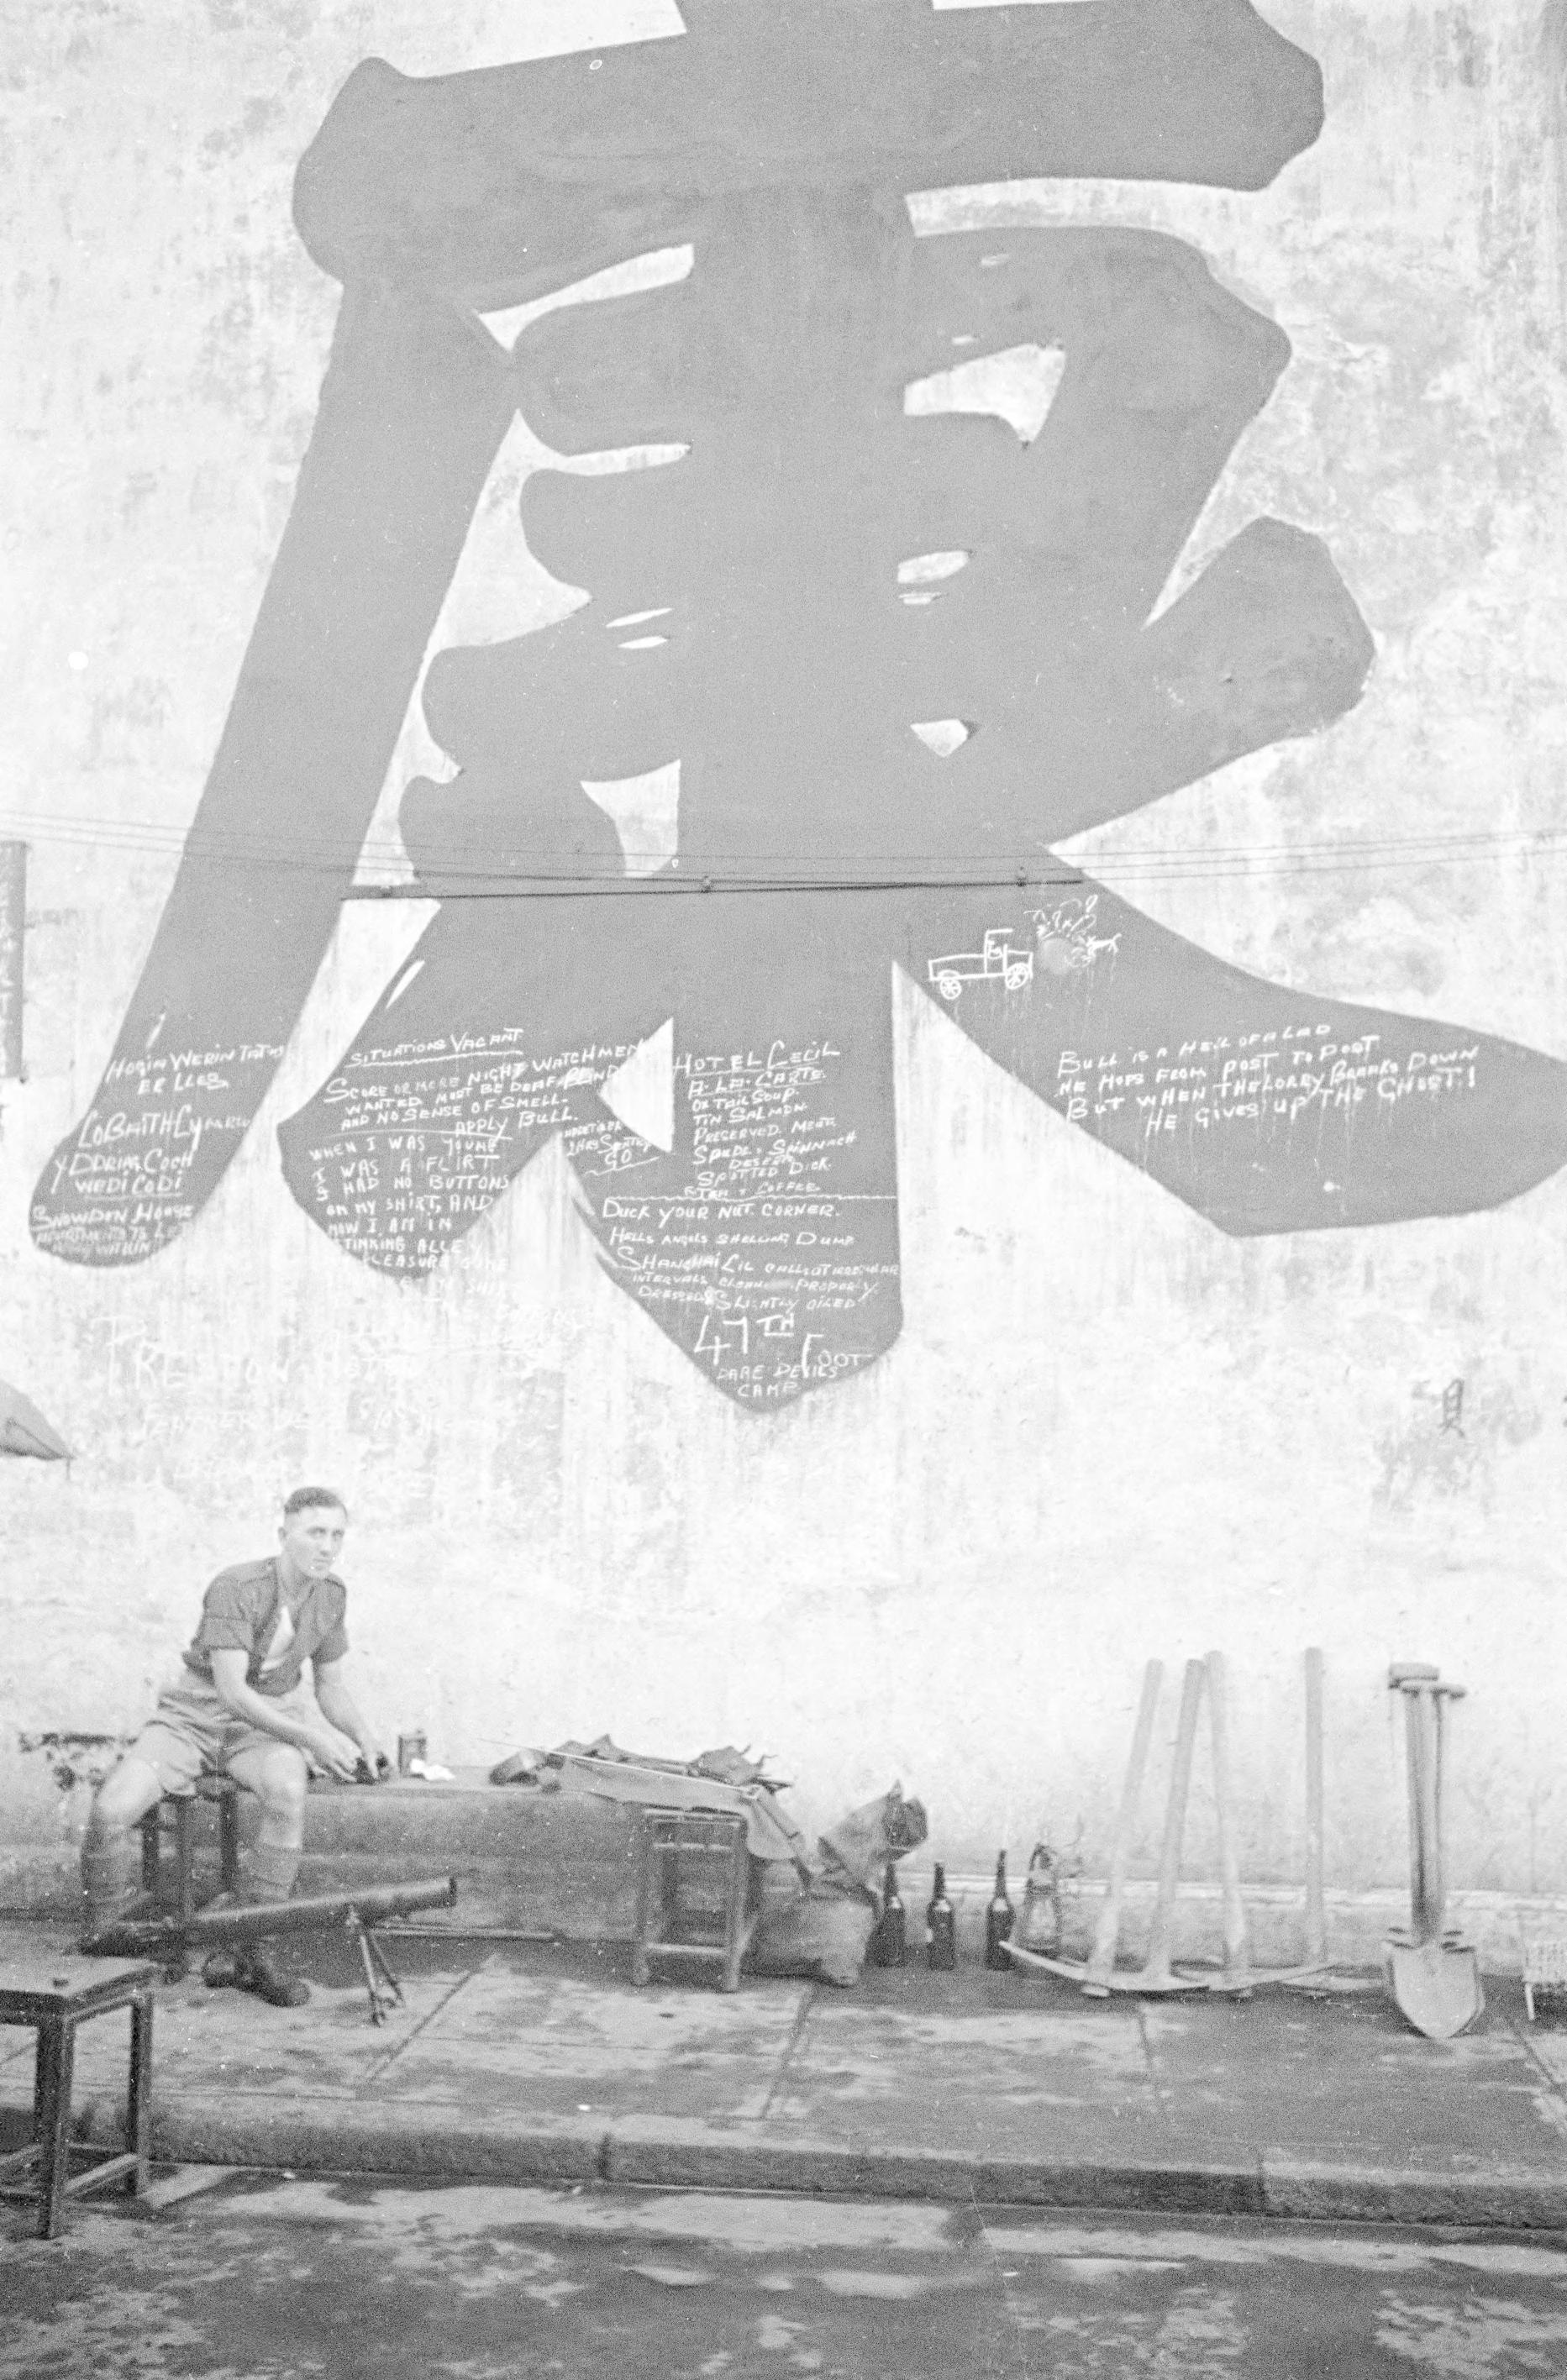 康
HOGIA WERIN
ER LLES
Y DDRAIG COCH
WEDI CODI
SNOWDON HOUSE
APARTMENTS TO LET
SITUATIONS VACANT
SCORE OR MORE NIGHT WATCHMEN
WANTED MUST BE DEAF BLIND
AND NO SENSE OF SMELL.
APPLY BULL.
WHEN I WAS YOUNG
I WAS A FLIRT
I HAD NO BUTTONS
ON MY SHIRT, AND
NOW I AM IN
STINKING ALLEY
PLEASURE GONE
HOTEL CECIL
A·LA·CARTE.
OX TAIL SOUP.
TIN SALMON
PRESERVED MEAT
SPUDS & SPINNACH
DESERT
SPOTTED DICK
COFFEE
DUCK YOUR NUT CORNER.
HELLS ANGELS SHELLING DUMP
SHANGHAI LIL CALLS AT IRREGULAR
INTERVALS CLEAN PROPERLY
DRESSED & SLIGHTLY OILED
47TH FOOT
DARE DEVILS
CAMP
BULL IS A HELL OF A LAD
HE HOPS FROM POST TO POST
BUT WHEN THE LORRY BREAKS DOWN
HE GIVES UP THE GHOST!
PRESTON HOTEL